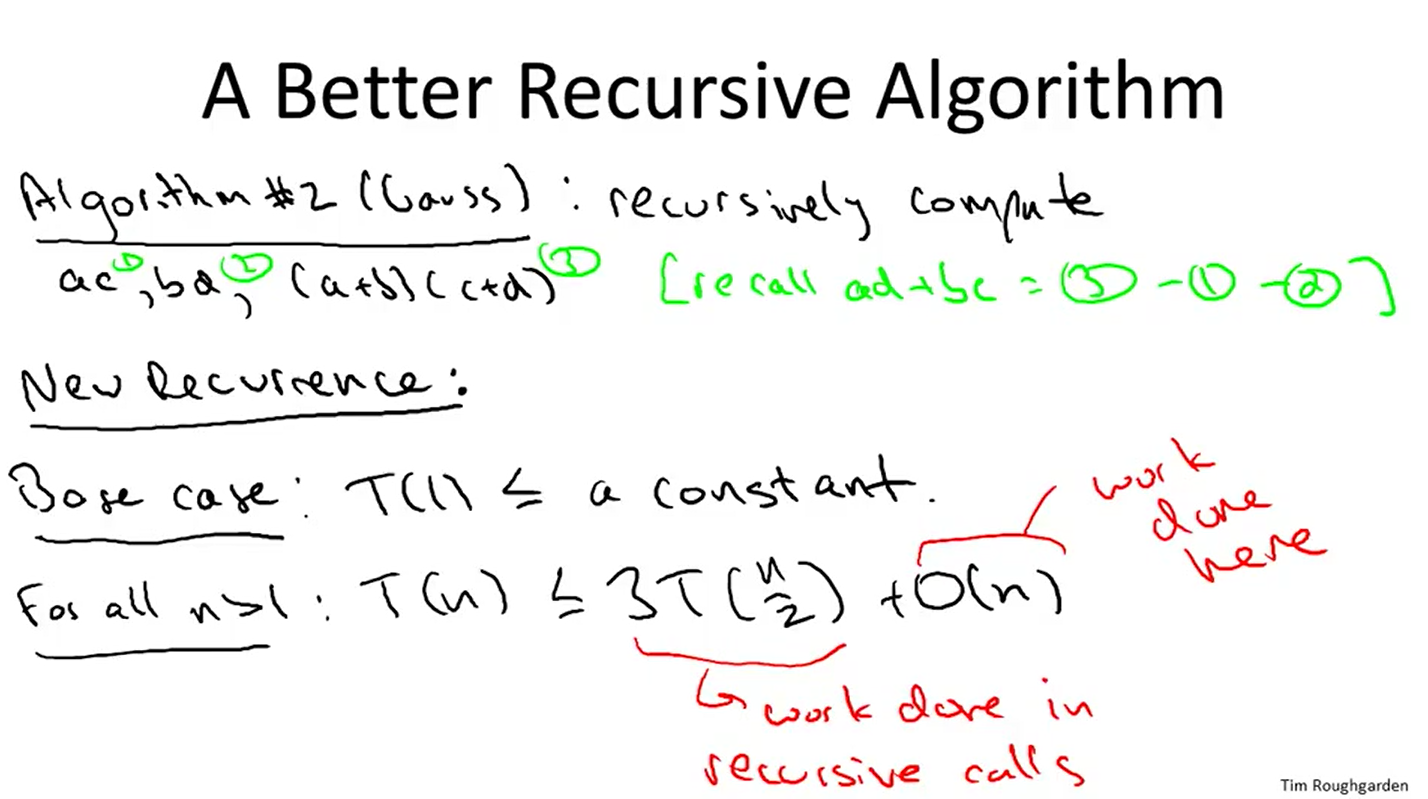 A Better Recursive Algorithm
Algorithm #2 (Gauss) : recursively compute
ac ①, bd ②, (a+b)(c+d) ③ [recall ad+bc = ③ - ① - ②]
New Recurrence:
Base case: T(1) ≤ a constant.
work
done
here
For all n>1 : T(n) ≤ 3T(n/2) + O(n)
↳ work done in
recursive calls
Tim Roughgarden